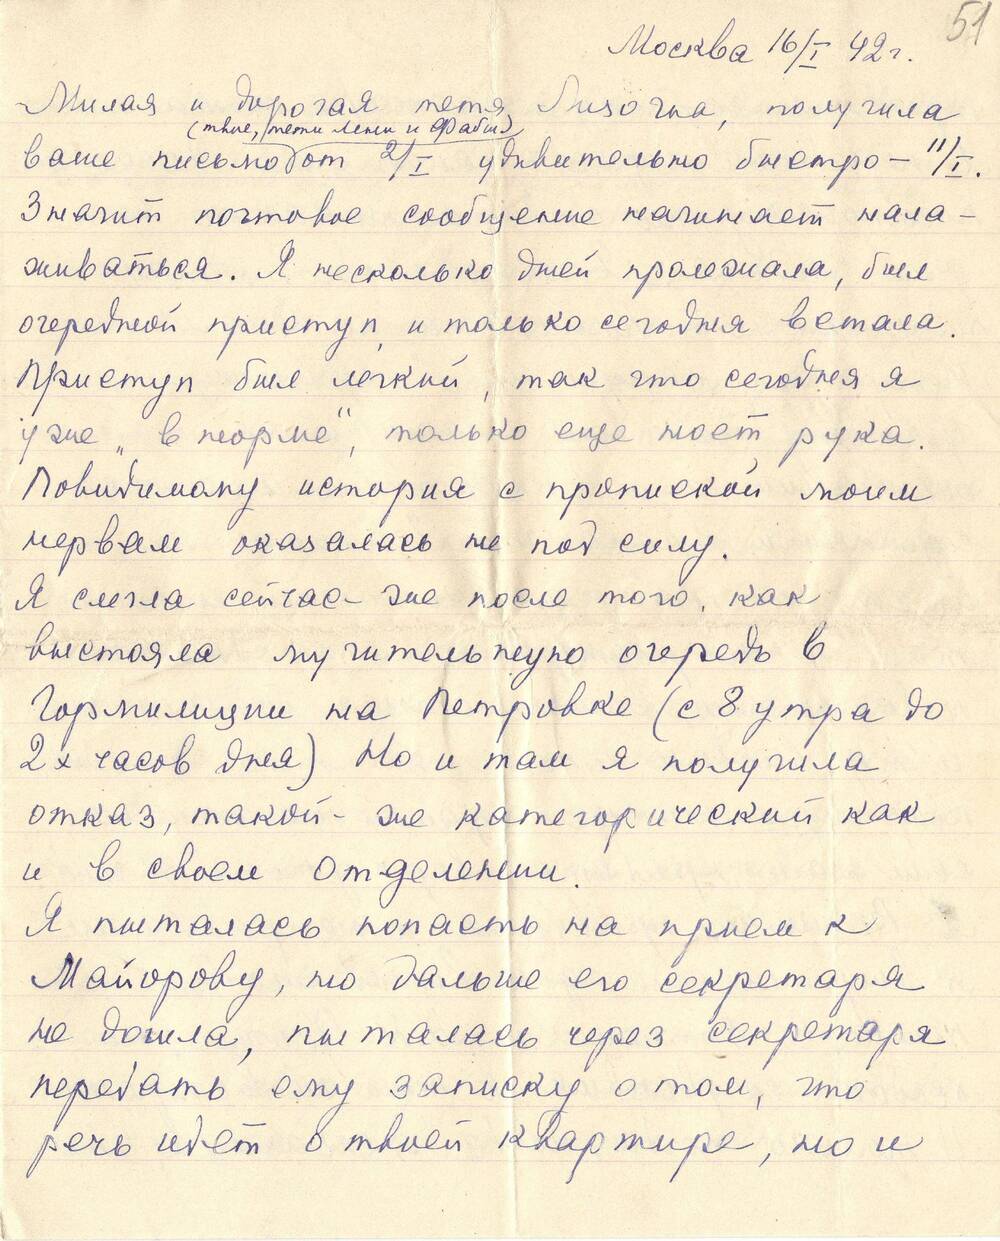 51
Москва 16/I 42 г.
Милая и дорогая тетя Лизочка, получила
(твое, тети Лени и Фабии)
ваше письмо от 2/I удивительно быстро – 11/I.
Значит почтовое сообщение начинает нала-
живаться. Я несколько дней пролежала, был
очередной приступ, и только сегодня встала.
Приступ был лёгкий, так что сегодня я
уже „в норме", только еще ноет рука.
Повидимому история с пропиской моим
нервам оказалась не под силу.
Я слегла сейчас-же после того, как
выстояла мучительную очередь в
Гормилиции на Петровке (с 8 утра до
2х часов дня) Но и там я получила
отказ, такой-же категорический как
и в своем отделении.
Я пыталась попасть на прием к
Майорову, но дальше его секретаря
не дошла, пыталась через секретаря
передать ему записку о том, что
речь идёт о твоей квартире, но и